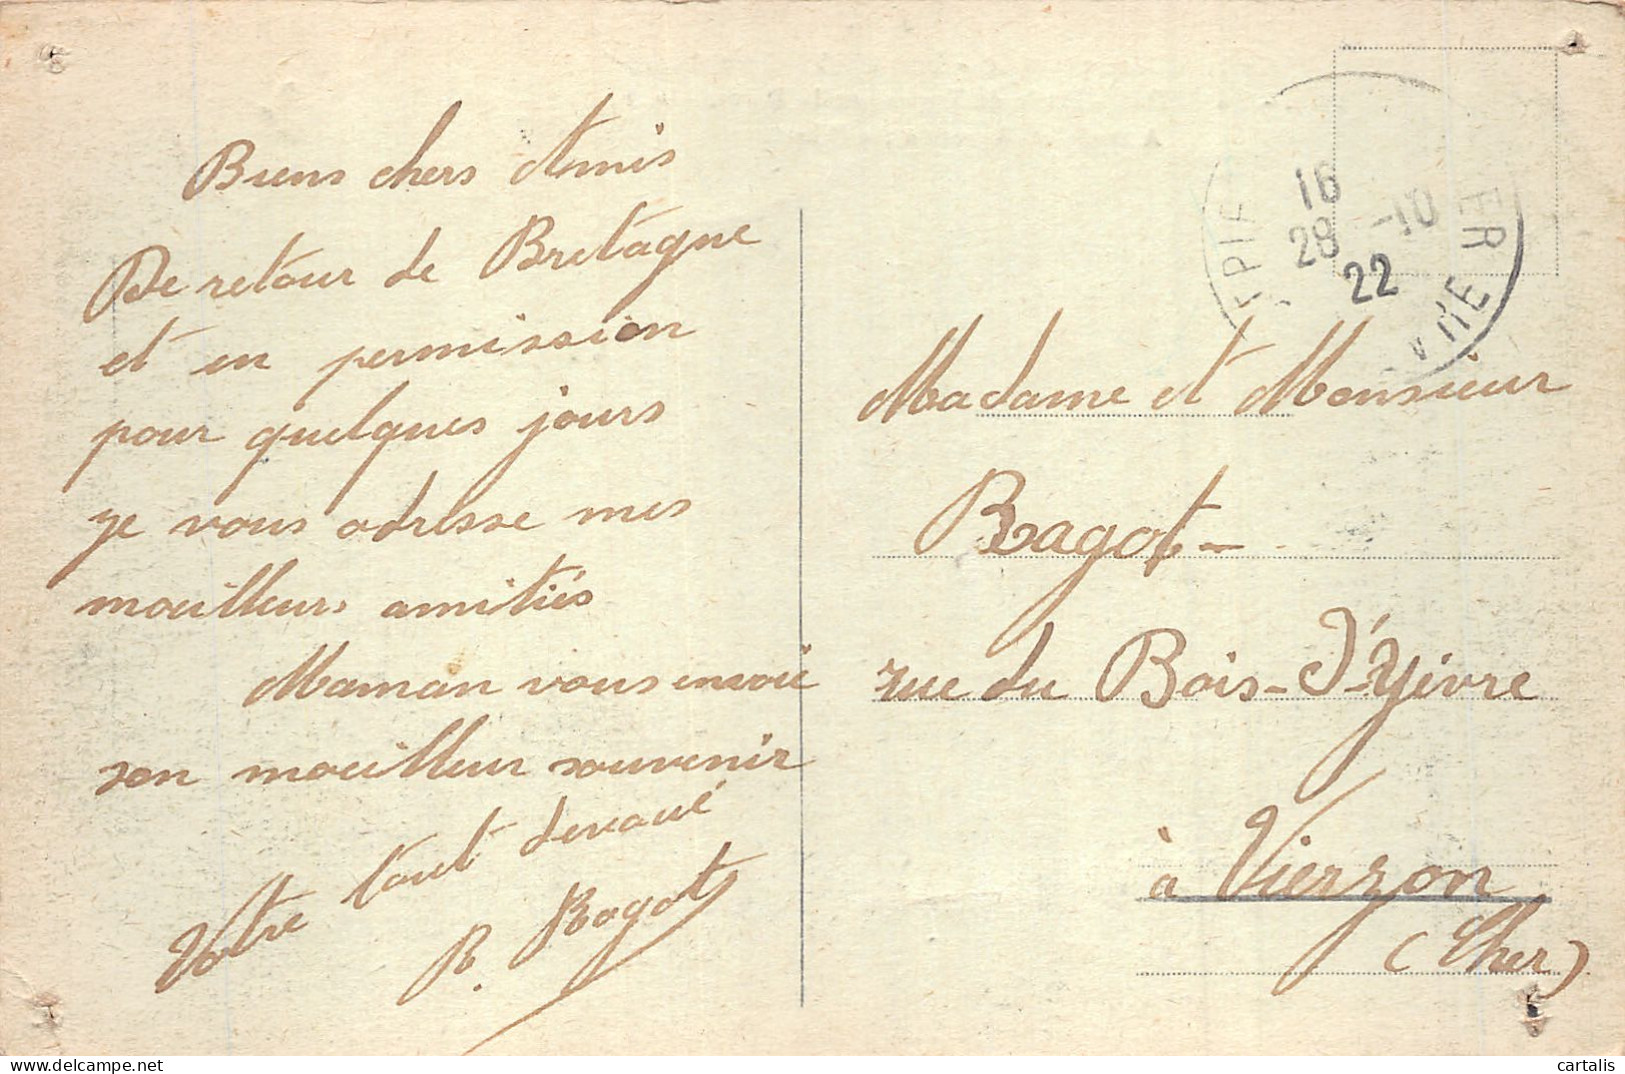 Biens chers Amis
De retour de Bretagne
et en permission
pour quelques jours
je vous adresse mes
meilleurs amitiés
Maman vous envoie
son meilleur souvenir
Votre tout dévoué
R. Bagot
16
28 -10
22
Madame et Monsieur
Bagot -
rue du Bois-d'Yèvre
à Vierzon
(Cher)
cartalis